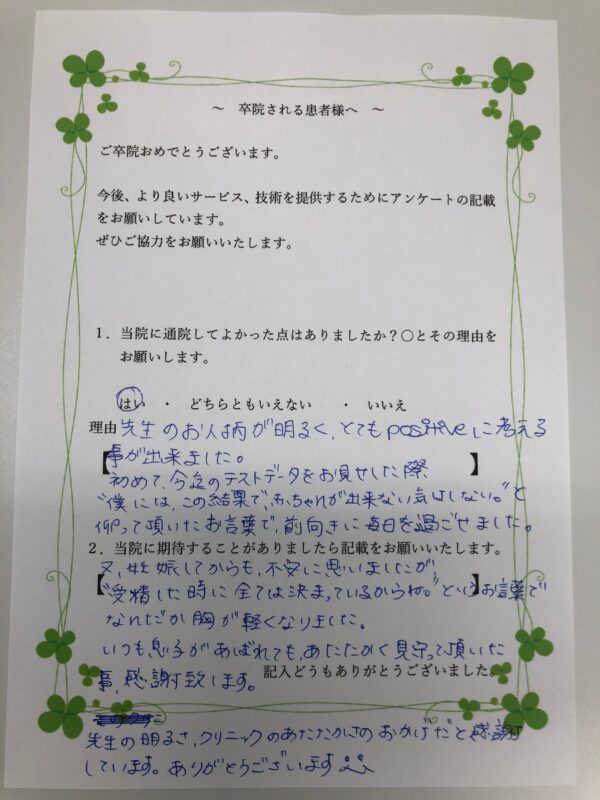 ～ 卒院される患者様へ ～
ご卒院おめでとうございます。
今後、より良いサービス、技術を提供するためにアンケートの記載
をお願いしています。
ぜひご協力をお願いいたします。
1．当院に通院してよかった点はありましたか？〇とその理由を
お願いします。
はい ・ どちらともいえない ・ いいえ
理由 先生のお人柄が明るく、とてもpositiveに考える
【事が出来ました。】
初めて、今迄のテストデータをお見せした際
"僕には、この結果で、赤ちゃんが出来ない気はしない。"と
仰って頂いたお言葉で、前向きに毎日を過ごせました。
2．当院に期待することがありましたら記載をお願いいたします。
又、妊娠してからも、不安に思いましたが
【"受精した時に全ては決まっているからね。"というお言葉で】
なんだか胸が軽くなりました。
いつも息子があばれても、あたたかく見守って頂いた
記入どうもありがとうございました。
事、感謝致します。
先生の明るさ、クリニックのあたたかさのおかげだと感謝
しています。ありがとうございます